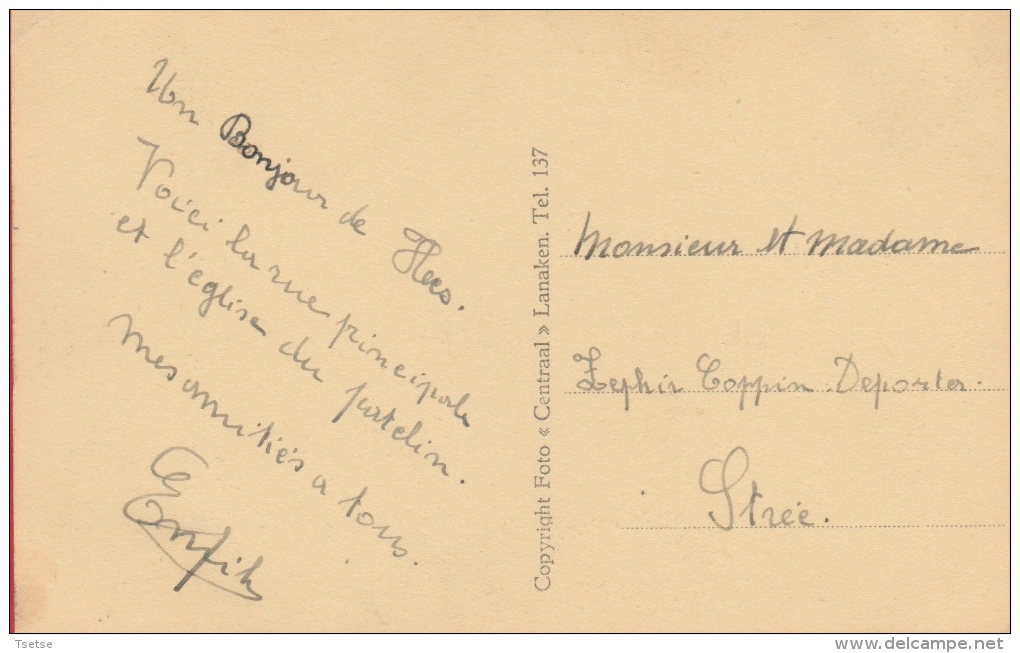 Un Bonjour de Hees.
Voici la rue principale
et l'église du patelin.
Mes amitiés a tous.
Copyright Foto « Centraal » Lanaken. Tel. 137
Monsieur et Madame
Zephir Coppin-Deporter.
Strée.
Tsetse
delcampe.net